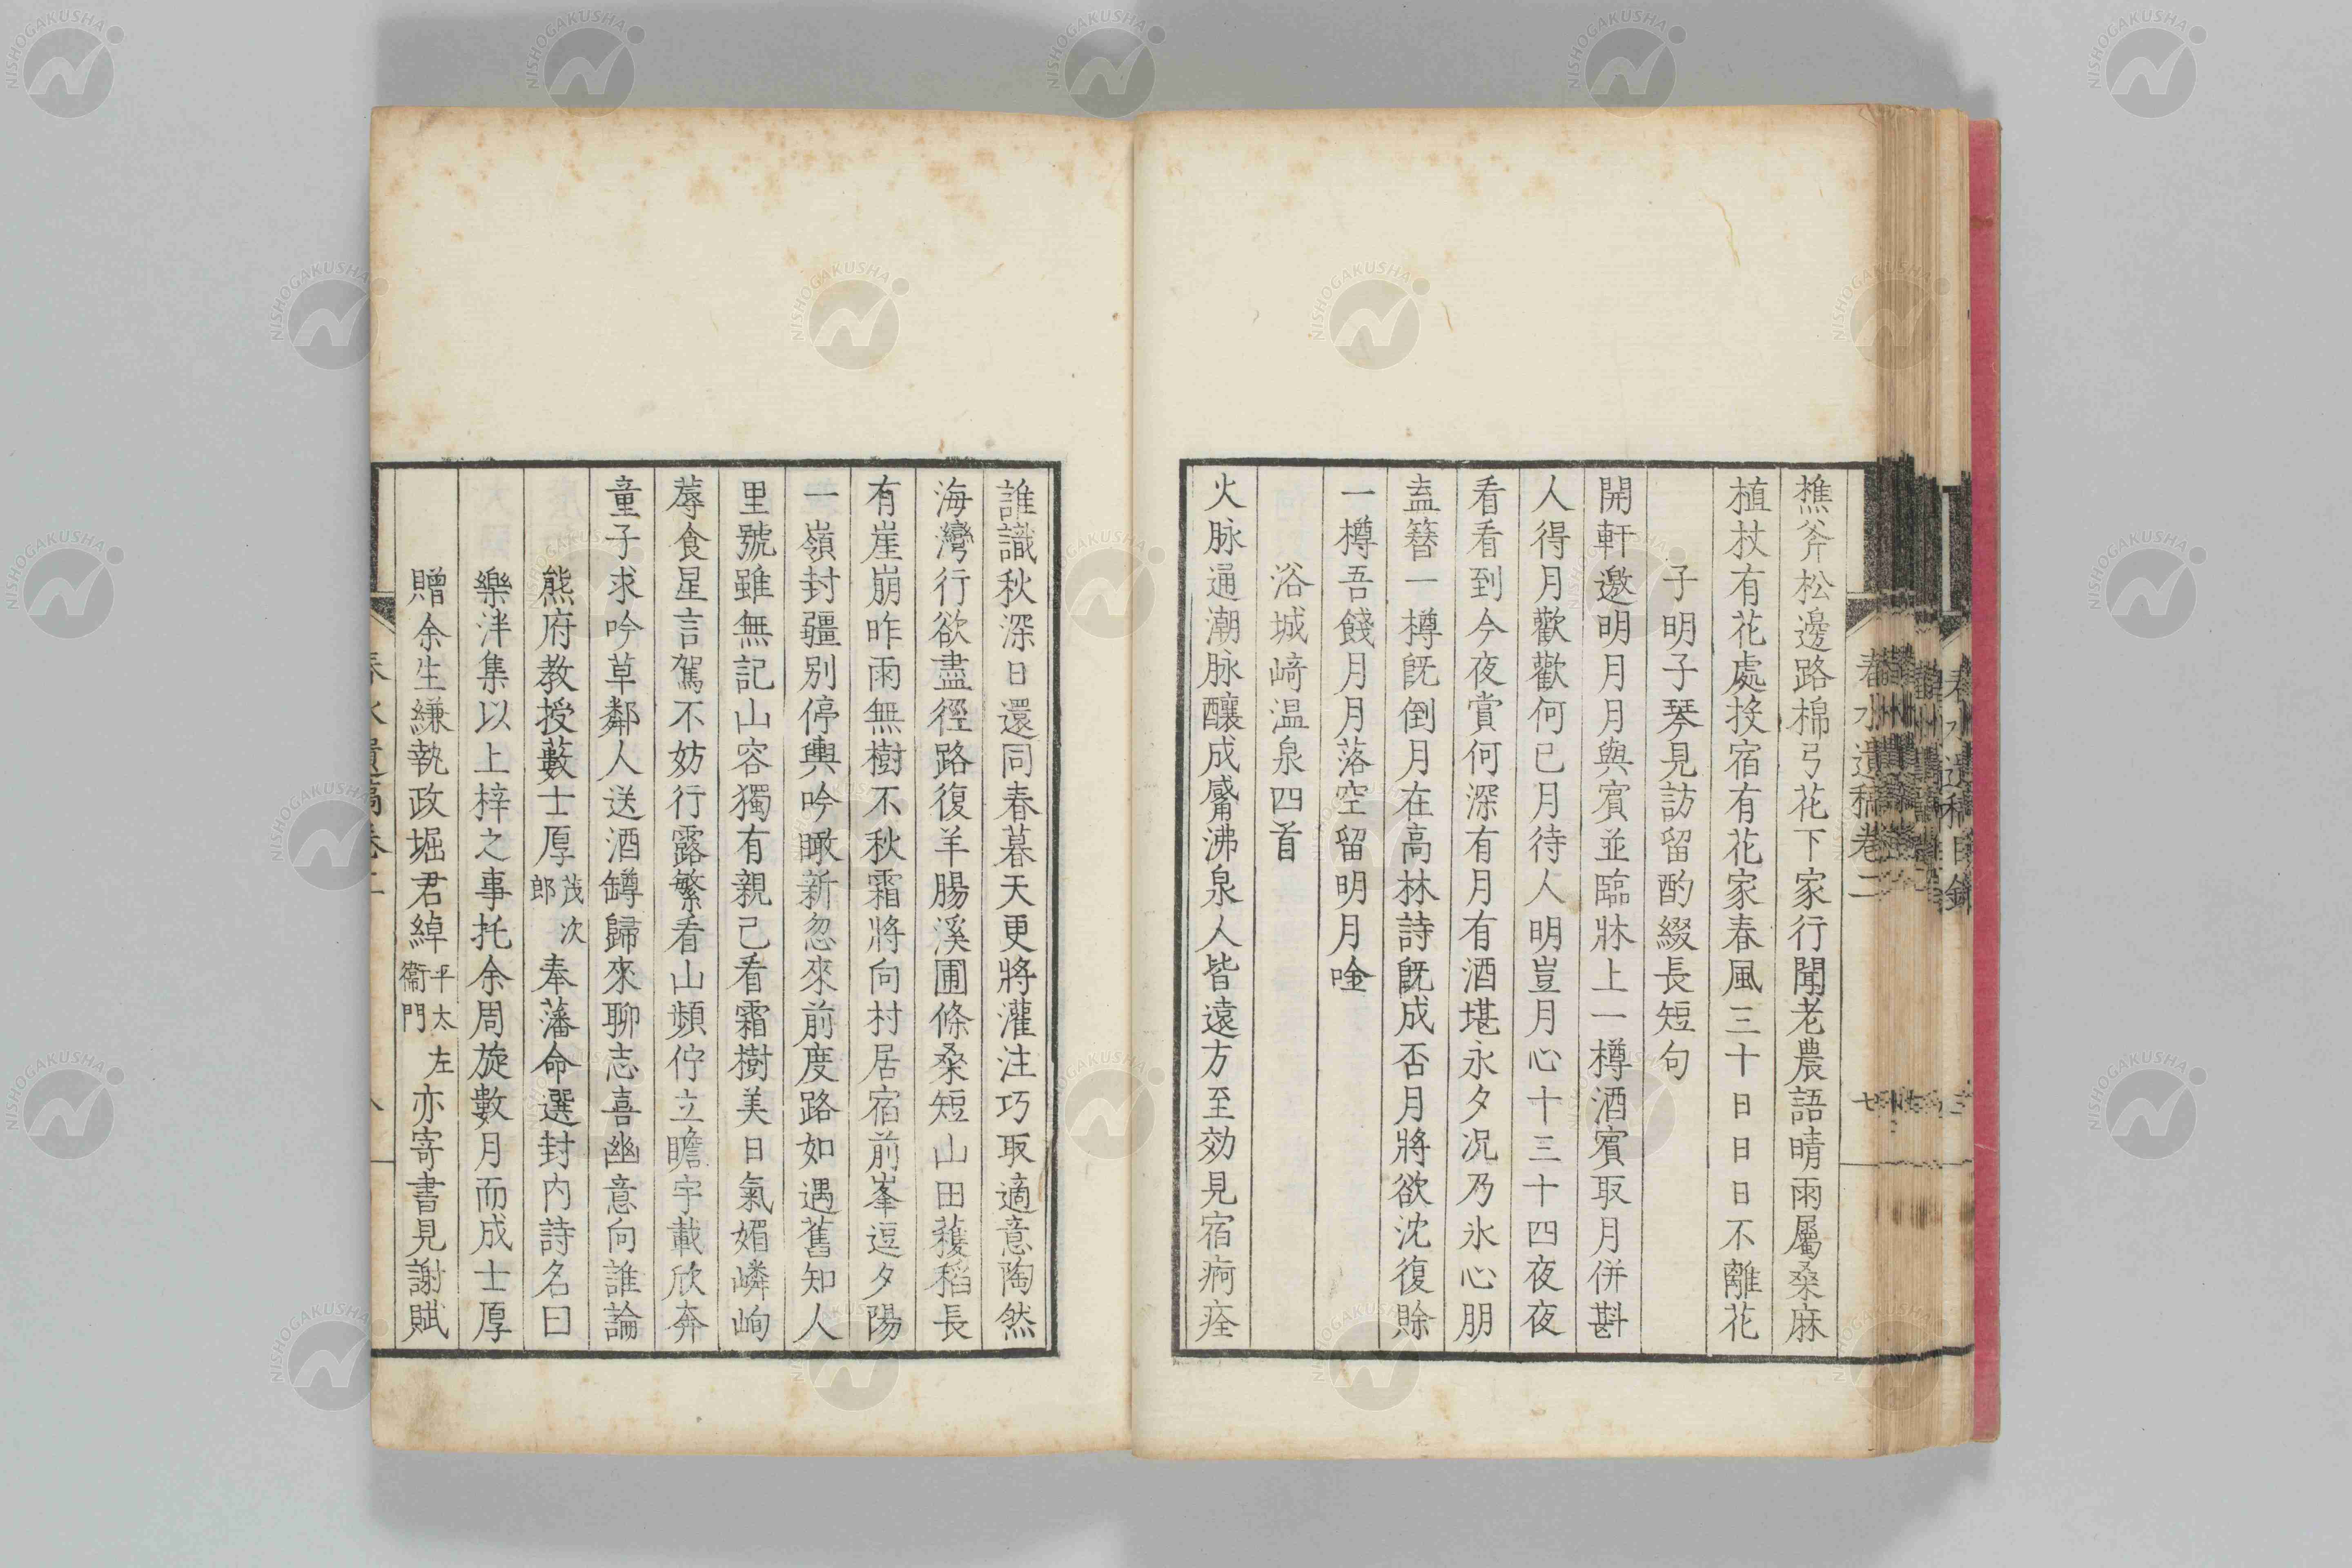 樵斧松邊路棉弓花下家行聞老農語晴雨屬桑麻
植杖有花處投宿有花家春風三十日日日不離花
子明子琴見訪留酌綴長短句
開軒邀明月月與賓並臨牀上一樽酒賓取月併斟
人得月歡歡何已月待人明豈月心十三十四夜夜
看看到今夜賞何深有月有酒堪永夕況乃氷心朋
盍簪一樽既倒月在高林詩既成否月將欲沈復賖
一樽吾餞月月落空留明月唫
浴城﨑温泉四首
火脉通潮脉釀成觱沸泉人皆遠方至効見宿痾痊
誰識秋深日還同春暮天更將灌注巧取適意陶然
海灣行欲盡徑路復羊腸溪圃條桑短山田穫稻長
有崖崩昨雨無樹不秋霜將向村居宿前峯逗夕陽
一嶺封疆別停輿吟瞰新忽來前度路如遇舊知人
里號雖無記山容獨有親己看霜樹美日氣媚嶙峋
蓐食星言駕不妨行露繁看山頻佇立瞻宇載欣奔
童子求吟草鄰人送酒罇歸來聊志喜幽意向誰論
熊府教授藪士厚茂次郎奉藩命選封内詩名曰
樂泮集以上梓之事托余周旋數月而成士厚
贈余生縑執政堀君綽平太左衞門亦寄書見謝賦
春水遺稿卷二
七
NISHOGAKUSHA